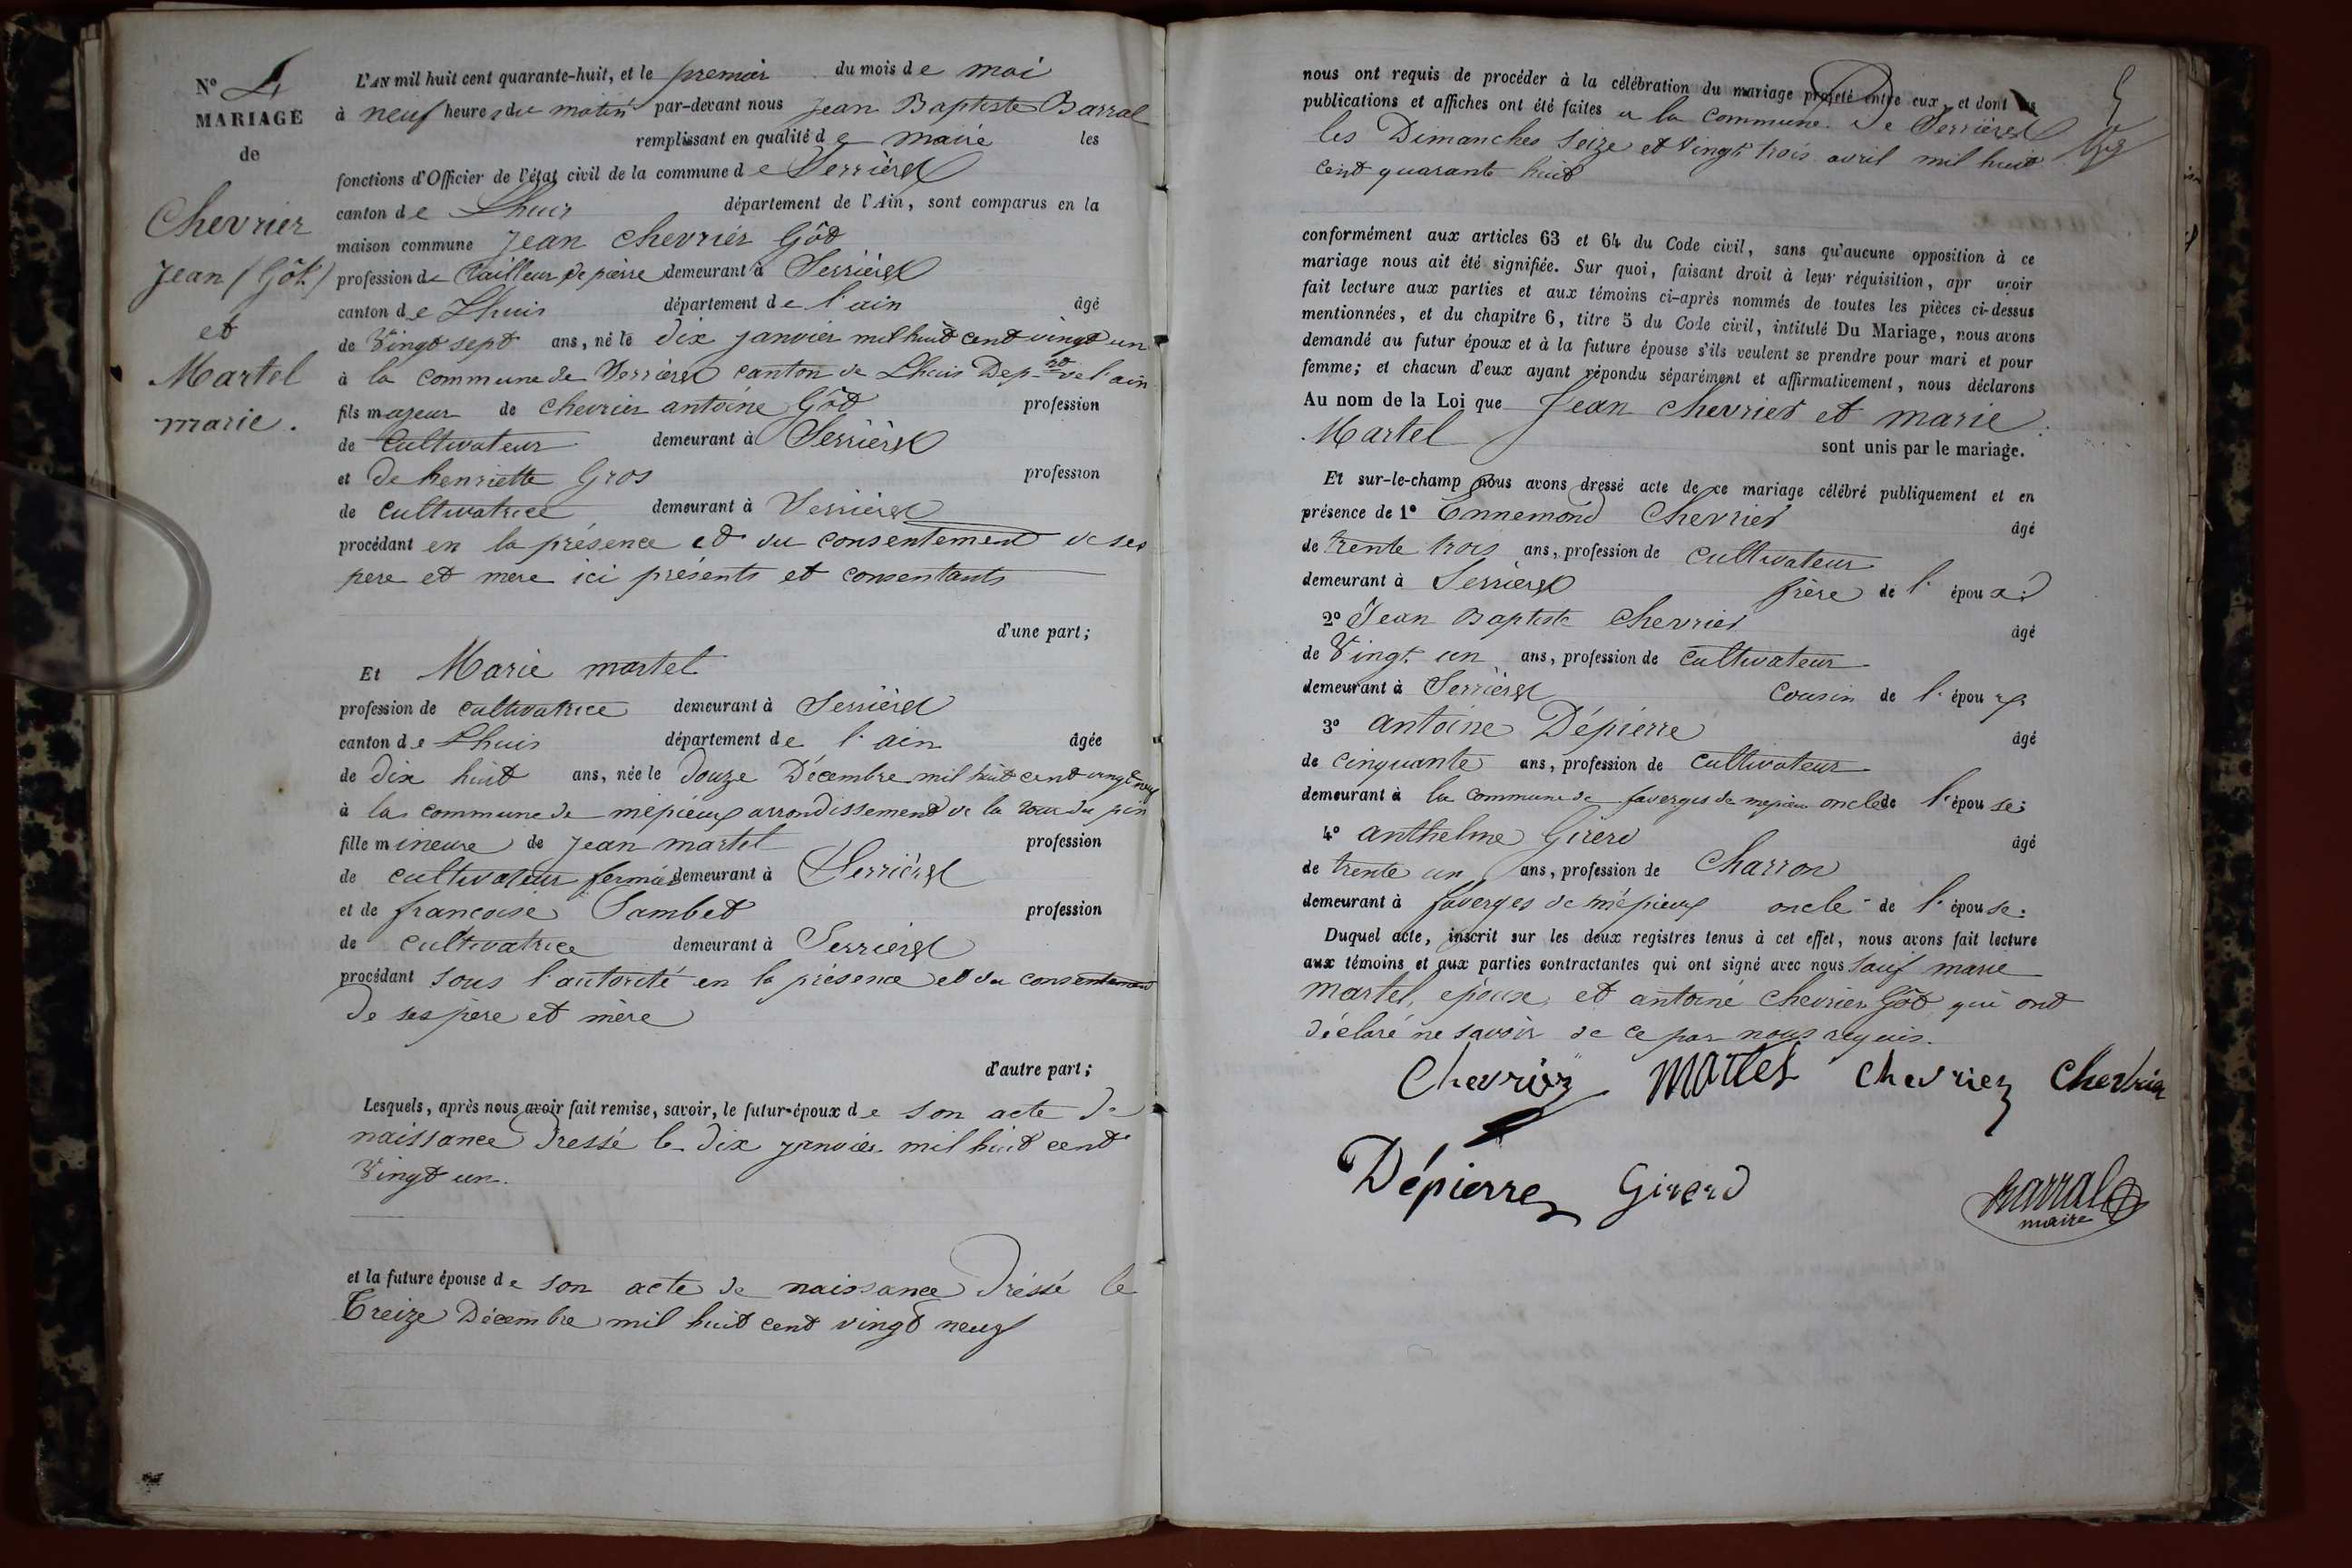 N° 4
MARIAGE
de
Chevrier
Jean (Gôt)
et
Martel
marie.
L'AN mil huit cent quarante-huit, et le premier du mois de mai
à neuf heures du matin par-devant nous Jean Baptiste Barral
remplissant en qualité de maire les
fonctions d'Officier de l'état civil de la commune de Serrières
canton de Lhuis département de l'Ain, sont comparus en la
maison commune Jean chevrier Gôt
profession de tailleur de pierre demeurant à Serrières
canton de Lhuis département de l'ain âgé
de vingt sept ans, né le dix janvier mil huit cent vingt un
à la commune de Serrières canton de Lhuis Dep.nt de l'ain
fils majeur de chevrier antoine Gôt profession
de cultivateur demeurant à Serrières
et de henriette Gros profession
de cultivatrice demeurant à Serrières
procédant en la présence et du consentement de ses
pere et mere ici présents et consentants
d'une part;
Et Marie martel
profession de cultivatrice demeurant à Serrières
canton de Lhuis département de l'ain âgée
de dix huit ans, née le douze Décembre mil huit cent vingt neuf
à la commune de mépieux arrondissement de la tour du pin
fille mineure de Jean martel profession
de cultivateur fermier demeurant à Serrières
et de francoise Sambet profession
de cultivatrice demeurant à Serrières
procédant sous l'autorité en la présence et du consentement
de ses père et mère
d'autre part;
Lesquels, après nous avoir fait remise, savoir, le futur époux de son acte de
naissance Dressé le dix janvier mil huit cent
vingt un.
et la future épouse de son acte de naissance Dréssé le
treize Décembre mil huit cent vingt neuf
nous ont requis de procéder à la célébration du mariage projeté entre eux, et dont les
publications et affiches ont été faites a la commune de Serrières
les Dimanches seize et vingt trois avril mil huit
cent quarante huit
conformément aux articles 63 et 64 du Code civil, sans qu'aucune opposition à ce
mariage nous ait été signifiée. Sur quoi, faisant droit à leur réquisition, apr avoir
fait lecture aux parties et aux témoins ci-après nommés de toutes les pièces ci-dessus
mentionnées, et du chapitre 6, titre 5 du Code civil, intitulé Du Mariage, nous avons
demandé au futur époux et à la future épouse s'ils veulent se prendre pour mari et pour
femme; et chacun d'eux ayant répondu séparément et affirmativement, nous déclarons
Au nom de la Loi que Jean chevrier et marie
Martel sont unis par le mariage.
Et sur-le-champ nous avons dressé acte de ce mariage célébré publiquement et en
présence de 1° Ennemond Chevrier âgé
de trente trois ans, profession de cultivateur
demeurant à Serrières frère de l' époux;
2° Jean Baptiste Chevrier âgé
de vingt un ans, profession de cultivateur
demeurant à Serrières cousin de l' époux;
3° antoine Dépierre âgé
de cinquante ans, profession de cultivateur
demeurant à la commune de faverges de mepieu oncle de l' épouse;
4° anthelme Girerd âgé
de trente un ans, profession de Charron
demeurant à faverges de mépieux oncle de l' épouse.
Duquel acte, inscrit sur les deux registres tenus à cet effet, nous avons fait lecture
aux témoins et aux parties contractantes qui ont signé avec nous sauf marie
martel, epouse, et antoine chevrier Gôt qui ont
déclaré ne savoir de ce par nous requis.
Chevrier Martel Chevrier Chevrier
Dépierre Girerd
Barral
maire